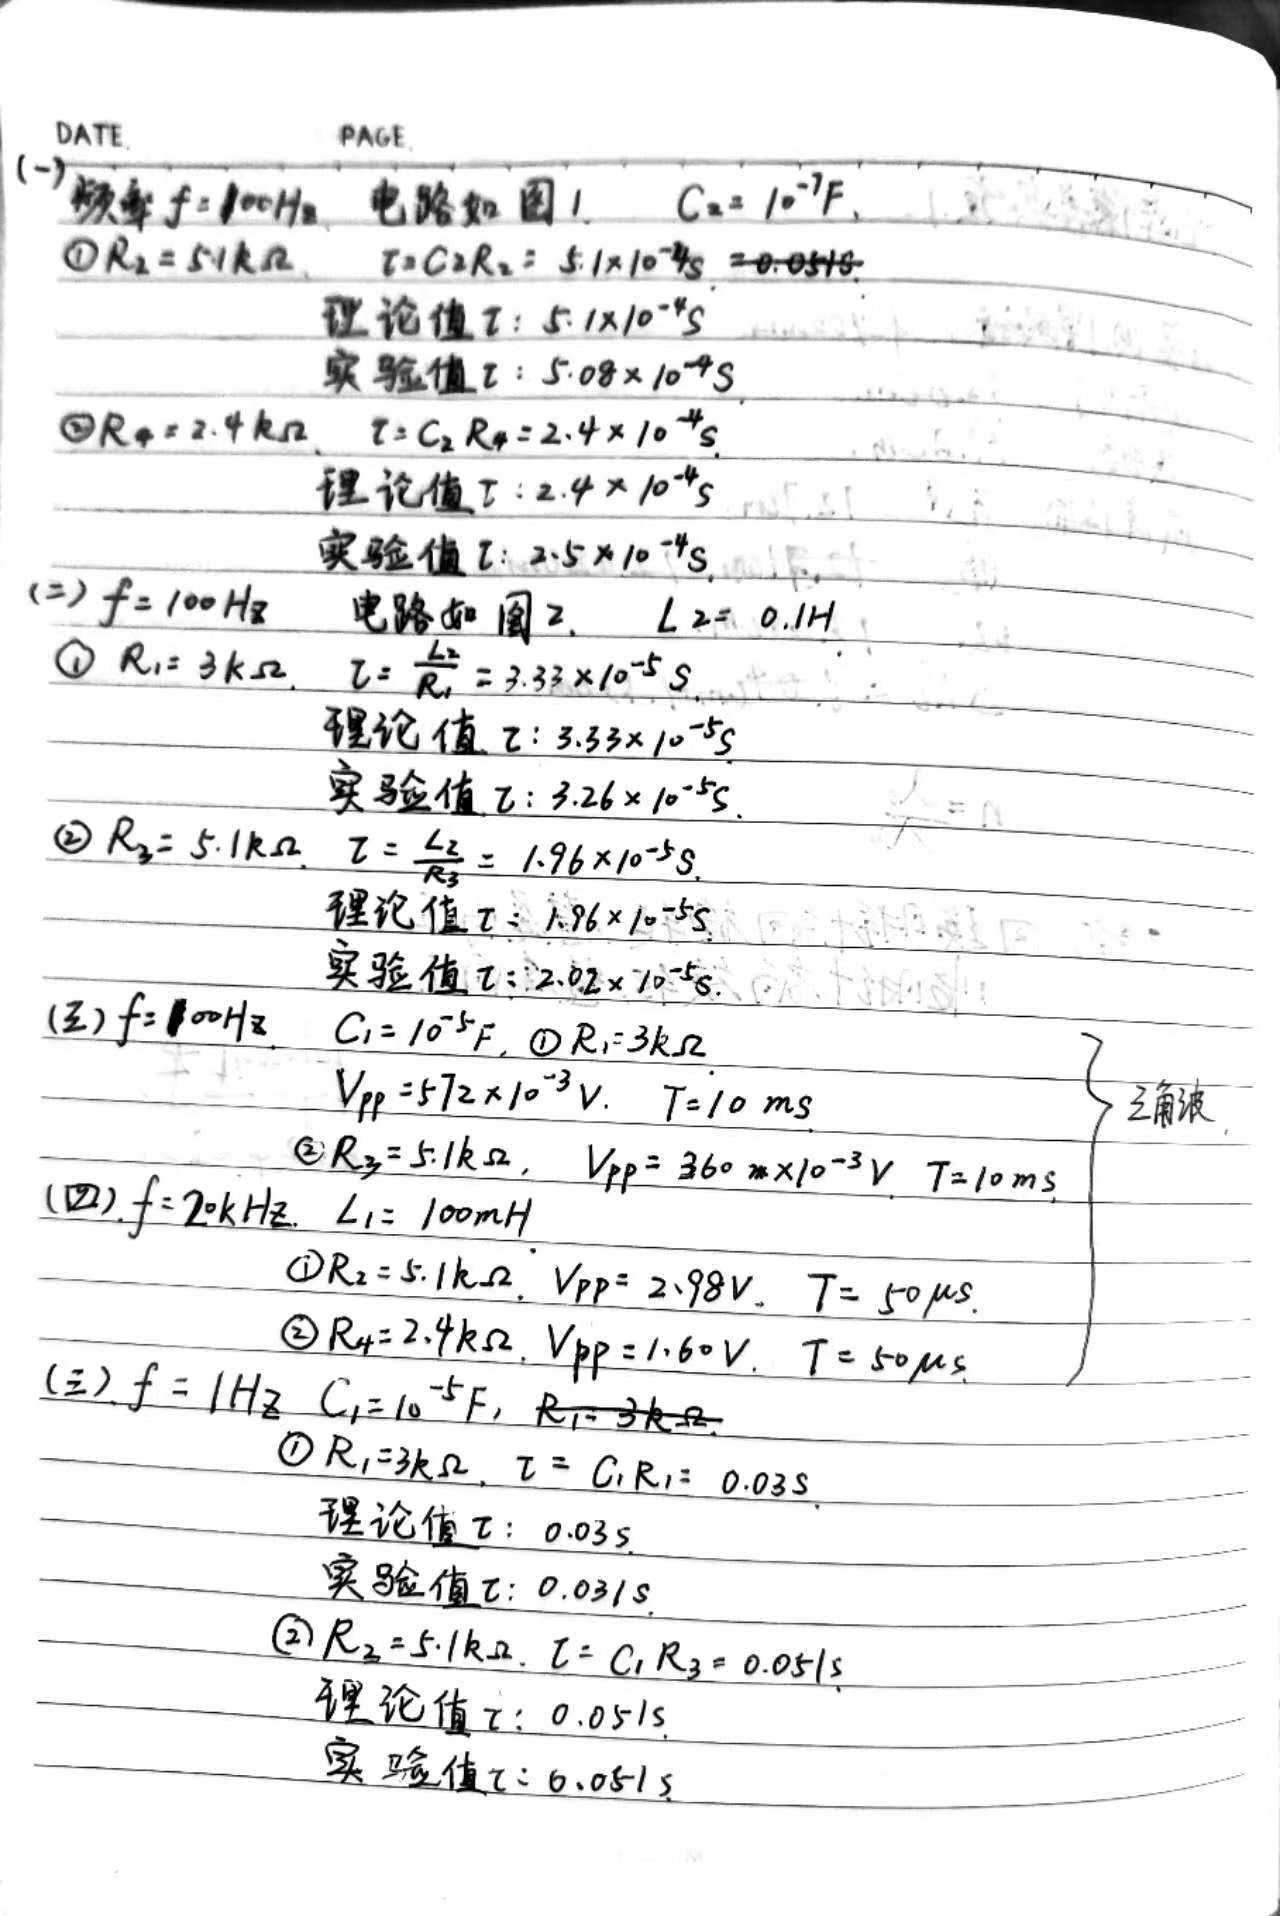 DATE. PAGE.
(一)
频率 f=100Hz 电路如图1. C₂=10⁻⁷F.
①R₂=5.1kΩ. τ=C₂R₂=5.1×10⁻⁴s =0.051s
理论值τ: 5.1×10⁻⁴s
实验值τ: 5.08×10⁻⁴s.
②R₄=2.4kΩ. τ=C₂R₄=2.4×10⁻⁴s.
理论值τ: 2.4×10⁻⁴s
实验值τ: 2.5×10⁻⁴s.
(二) f=100Hz 电路如图2. L₂=0.1H
① R₁=3kΩ. τ=L₂/R₁=3.33×10⁻⁵s.
理论值τ: 3.33×10⁻⁵s
实验值τ: 3.26×10⁻⁵s.
② R₃=5.1kΩ. τ=L₂/R₃=1.96×10⁻⁵s.
理论值τ: 1.96×10⁻⁵s.
实验值τ: 2.02×10⁻⁵s.
(三) f=100Hz. C₁=10⁻⁵F. ①R₁=3kΩ
Vpp=572×10⁻³V. T=10ms.
三角波.
②R₃=5.1kΩ, Vpp=360×10⁻³V. T=10ms.
(四). f=20kHz. L₁=100mH
①R₂=5.1kΩ. Vpp=2.98V. T=50μs.
②R₄=2.4kΩ. Vpp=1.60V. T=50μs.
(三). f=1Hz C₁=10⁻⁵F, R₁=3kΩ.
① R₁=3kΩ. τ=C₁R₁=0.03s.
理论值τ: 0.03s.
实验值τ: 0.031s.
② R₃=5.1kΩ. τ=C₁R₃=0.051s
理论值τ: 0.051s.
实验值τ: 0.051s.